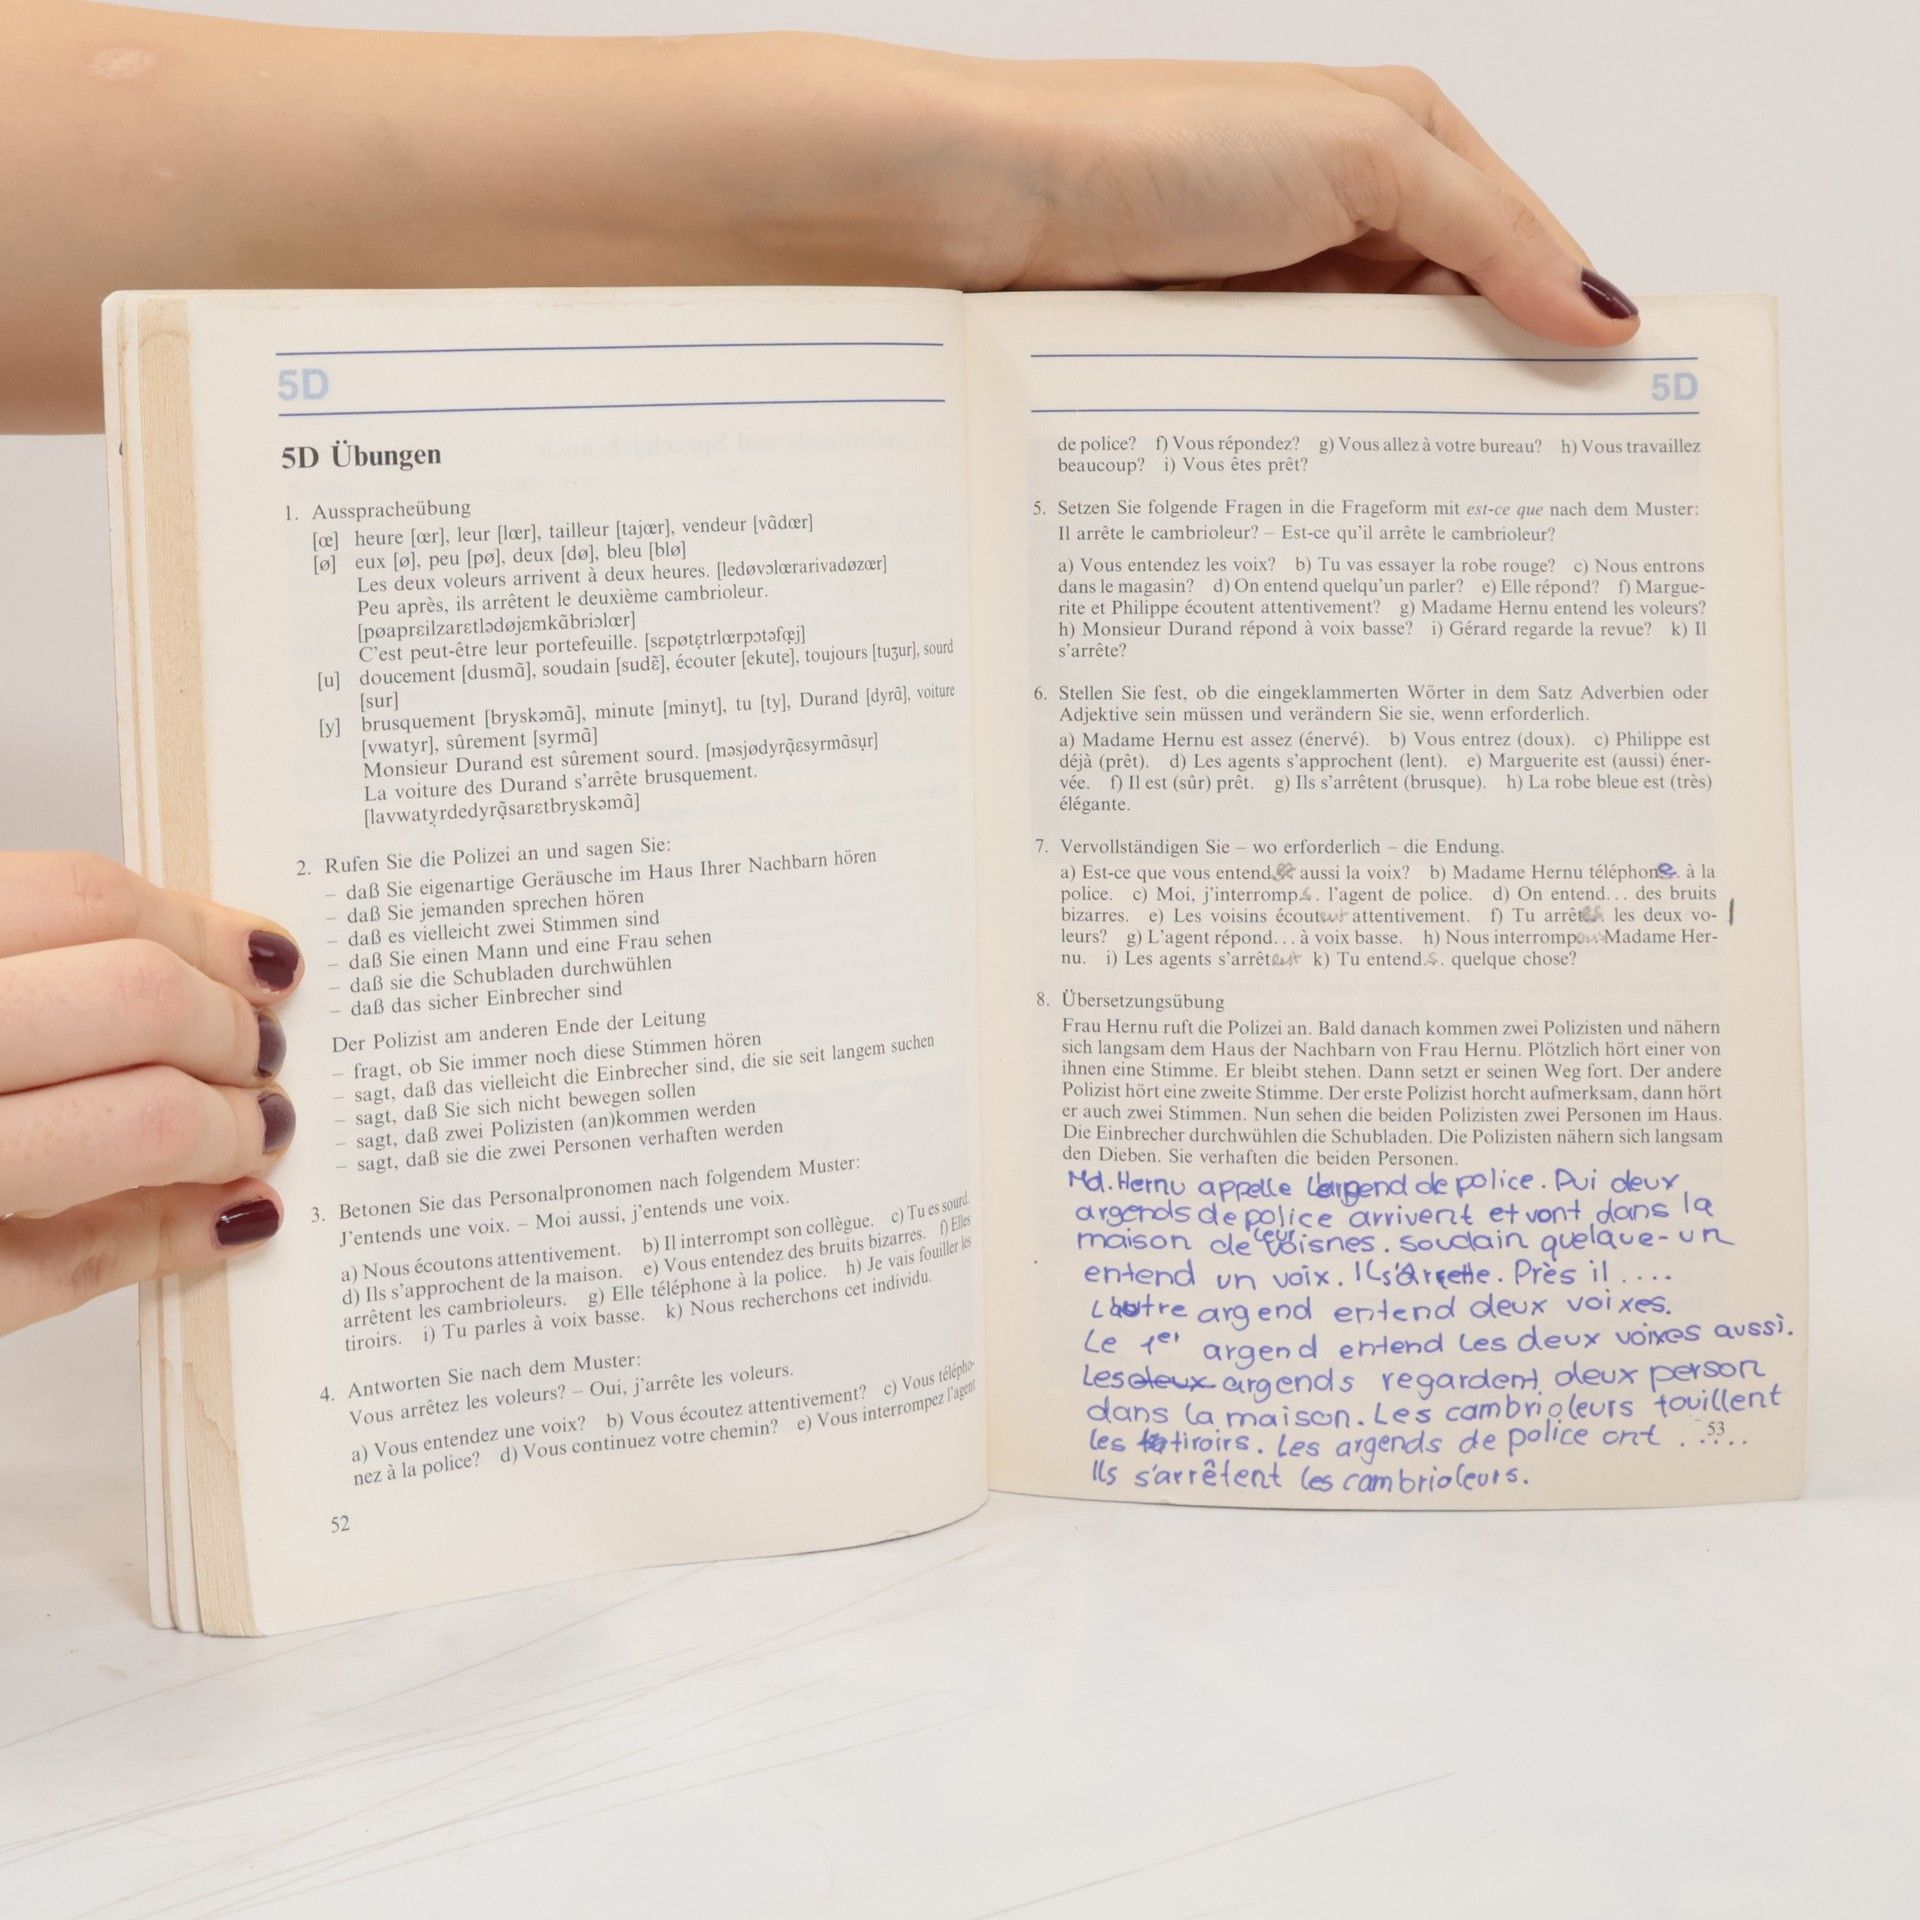 5D
5D Übungen
1. Ausspracheübung
[œ] heure [œr], leur [lœr], tailleur [tajœr], vendeur [vãdœr]
[ø] eux [ø], peu [pø], deux [dø], bleu [blø]
Les deux voleurs arrivent à deux heures. [ledøvɔlœrarivadøzœr]
Peu après, ils arrêtent le deuxième cambrioleur.
[pøaprɛilzarɛtlədøjɛmkãbriɔlœr]
C'est peut-être leur portefeuille. [sɛpøtɛtrlœrpɔtəfœj]
[u] doucement [dusmã], soudain [sudɛ̃], écouter [ekute], toujours [tuʒur], sourd
[sur]
[y] brusquement [bryskəmã], minute [minyt], tu [ty], Durand [dyrã], voiture
[vwatyr], sûrement [syrmã]
Monsieur Durand est sûrement sourd. [məsjødyrãɛsyrmãsur]
La voiture des Durand s'arrête brusquement.
[lavwatyrdedyrãsarɛtbryskəmã]
2. Rufen Sie die Polizei an und sagen Sie:
– daß Sie eigenartige Geräusche im Haus Ihrer Nachbarn hören
– daß Sie jemanden sprechen hören
– daß es vielleicht zwei Stimmen sind
– daß Sie einen Mann und eine Frau sehen
– daß sie die Schubladen durchwühlen
– daß das sicher Einbrecher sind
Der Polizist am anderen Ende der Leitung
– fragt, ob Sie immer noch diese Stimmen hören
– sagt, daß das vielleicht die Einbrecher sind, die sie seit langem suchen
– sagt, daß Sie sich nicht bewegen sollen
– sagt, daß zwei Polizisten (an)kommen werden
– sagt, daß sie die zwei Personen verhaften werden
3. Betonen Sie das Personalpronomen nach folgendem Muster:
J'entends une voix. – Moi aussi, j'entends une voix.
a) Nous écoutons attentivement. b) Il interrompt son collègue. c) Tu es sourd.
d) Ils s'approchent de la maison. e) Vous entendez des bruits bizarres. f) Elles
arrêtent les cambrioleurs. g) Elle téléphone à la police. h) Je vais fouiller les
tiroirs. i) Tu parles à voix basse. k) Nous recherchons cet individu.
4. Antworten Sie nach dem Muster:
Vous arrêtez les voleurs? – Oui, j'arrête les voleurs.
a) Vous entendez une voix? b) Vous écoutez attentivement? c) Vous télépho-
nez à la police? d) Vous continuez votre chemin? e) Vous interrompez l'agent
52
5D
de police? f) Vous répondez? g) Vous allez à votre bureau? h) Vous travaillez
beaucoup? i) Vous êtes prêt?
5. Setzen Sie folgende Fragen in die Frageform mit est-ce que nach dem Muster:
Il arrête le cambrioleur? – Est-ce qu'il arrête le cambrioleur?
a) Vous entendez les voix? b) Tu vas essayer la robe rouge? c) Nous entrons
dans le magasin? d) On entend quelqu'un parler? e) Elle répond? f) Margue-
rite et Philippe écoutent attentivement? g) Madame Hernu entend les voleurs?
h) Monsieur Durand répond à voix basse? i) Gérard regarde la revue? k) Il
s'arrête?
6. Stellen Sie fest, ob die eingeklammerten Wörter in dem Satz Adverbien oder
Adjektive sein müssen und verändern Sie sie, wenn erforderlich.
a) Madame Hernu est assez (énervé). b) Vous entrez (doux). c) Philippe est
déjà (prêt). d) Les agents s'approchent (lent). e) Marguerite est (aussi) éner-
vée. f) Il est (sûr) prêt. g) Ils s'arrêtent (brusque). h) La robe bleue est (très)
élégante.
7. Vervollständigen Sie – wo erforderlich – die Endung.
a) Est-ce que vous entend.ez aussi la voix? b) Madame Hernu téléphone. à la
police. c) Moi, j'interromp.s. l'agent de police. d) On entend... des bruits
bizarres. e) Les voisins écoutent attentivement. f) Tu arrêtes. les deux vo-
leurs? g) L'agent répond... à voix basse. h) Nous interrompons Madame Her-
nu. i) Les agents s'arrêtent k) Tu entend.s. quelque chose?
8. Übersetzungsübung
Frau Hernu ruft die Polizei an. Bald danach kommen zwei Polizisten und nähern
sich langsam dem Haus der Nachbarn von Frau Hernu. Plötzlich hört einer von
ihnen eine Stimme. Er bleibt stehen. Dann setzt er seinen Weg fort. Der andere
Polizist hört eine zweite Stimme. Der erste Polizist horcht aufmerksam, dann hört
er auch zwei Stimmen. Nun sehen die beiden Polizisten zwei Personen im Haus.
Die Einbrecher durchwühlen die Schubladen. Die Polizisten nähern sich langsam
den Dieben. Sie verhaften die beiden Personen.
Md. Hernu appelle l'argend de police. Pui deux
argends de police arrivent et vont dans la
maison de leur voisnes. Soudain quelque-un
entend un voix. Il s'arrette. Près il ....
L'autre argend entend deux voixes.
Le 1er argend entend les deux voixes aussi.
Les deux argends regardent deux person
dans la maison. Les cambrioleurs fouillent
les tiroirs. Les argends de police ont .....
Ils s'arrêtent les cambrioleurs.
53